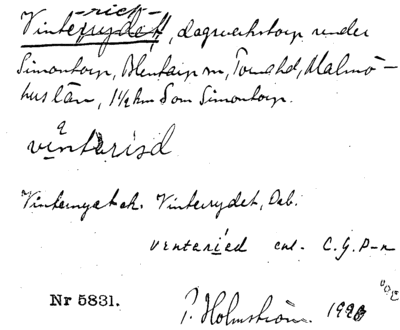 -rick-
Vinterrydet, dagsverkstorp under
Simontorp, Blentarp sn, Torna hd, Malmö-
hus län, 1½ km S om Simontorp.
vinterisd
Vinterrydet, Deb.
venteried enl. C. G. P-n
Nr 5831.
P. Holmström 1926